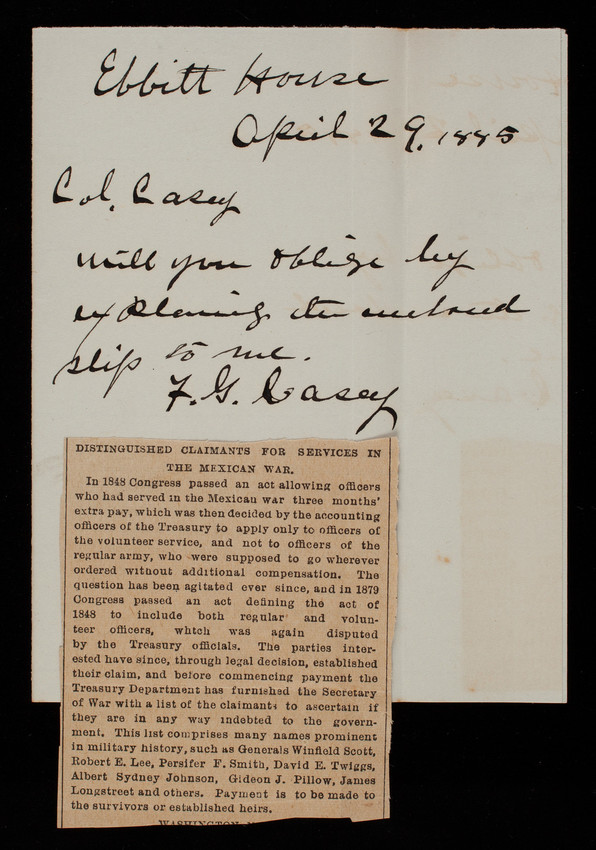 Ebbitt House
April 29, 1885
Col. Casey
Will you oblige by
explaining the enclosed
slip to me.
F. G. Casey
DISTINGUISHED CLAIMANTS FOR SERVICES IN
THE MEXICAN WAR.
In 1848 Congress passed an act allowing officers
who had served in the Mexican war three months'
extra pay, which was then decided by the accounting
officers of the Treasury to apply only to officers of
the volunteer service, and not to officers of the
regular army, who were supposed to go wherever
ordered without additional compensation. The
question has been agitated ever since, and in 1879
Congress passed an act defining the act of
1848 to include both regular and volun-
teer officers, which was again disputed
by the Treasury officials. The parties inter-
ested have since, through legal decision, established
their claim, and before commencing payment the
Treasury Department has furnished the Secretary
of War with a list of the claimants to ascertain if
they are in any way indebted to the govern-
ment. This list comprises many names prominent
in military history, such as Generals Winfield Scott,
Robert E. Lee, Persifer F. Smith, David E. Twiggs,
Albert Sydney Johnson, Gideon J. Pillow, James
Longstreet and others. Payment is to be made to
the survivors or established heirs.